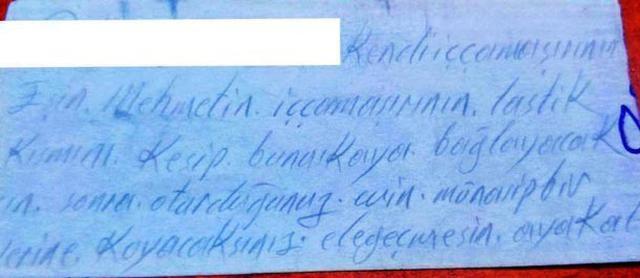 Kendiiççamaşırının
Eşin. Mehmetin. iççamaşırının. lastik
Kısmını. Kesip. bunaıKaya. bağlayacaK
sonra. oturduğunuz. evin. münasipbir
Yerine. Koyacaksınız. elegeçmesin.